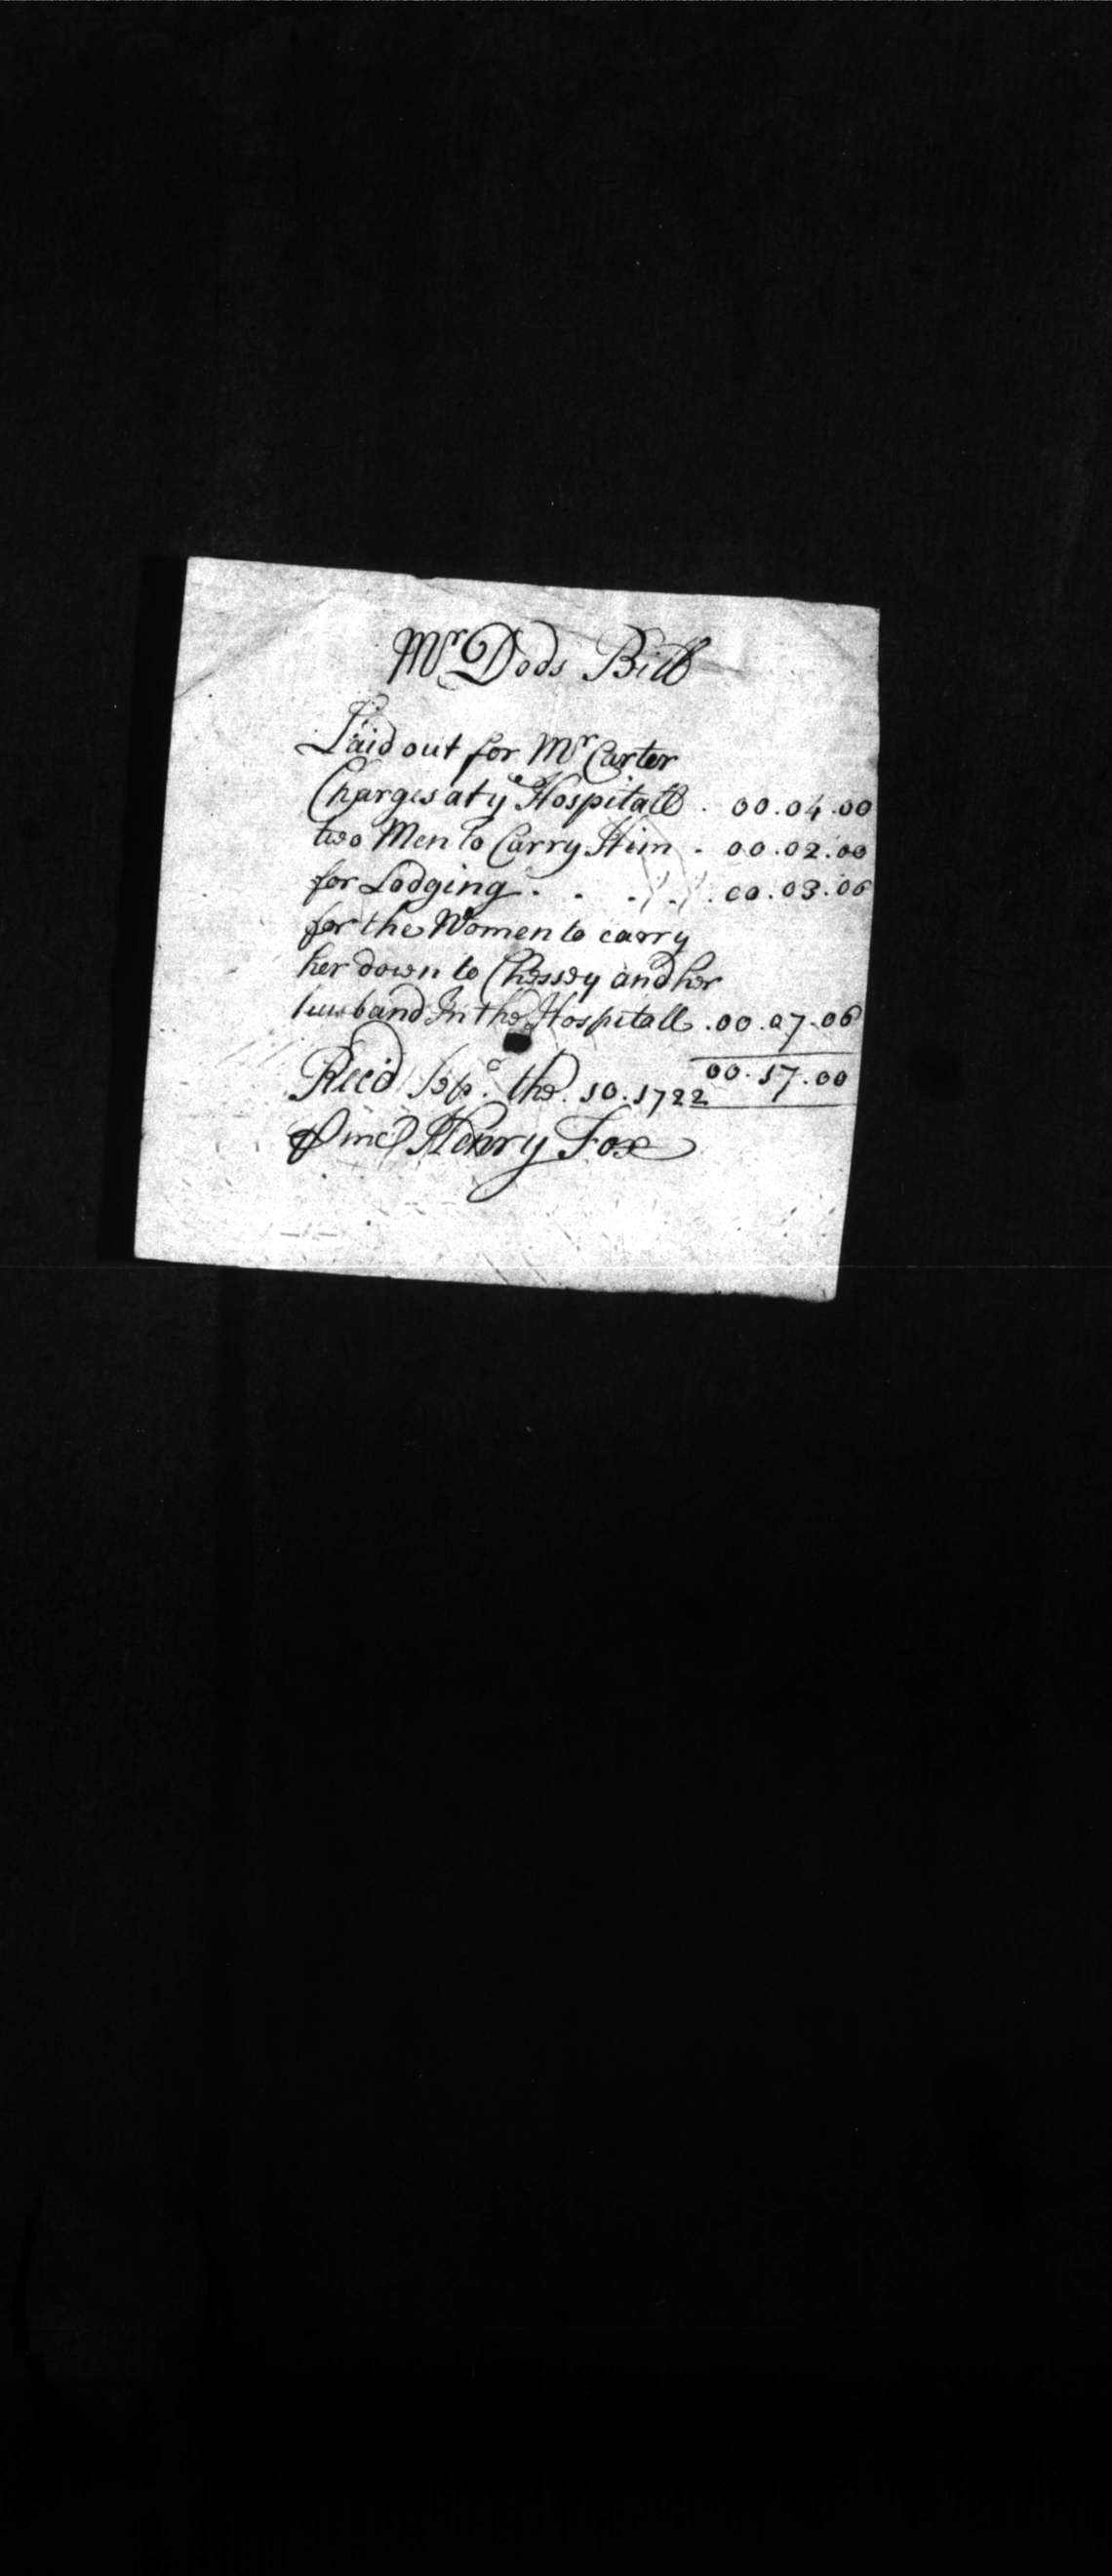 Mr Dods Bill
Laid out for Mr Carter
Charges at ye Hospitall . 00.04.00
two Men to Carry Him . 00.02.00
for Lodging . . . . . 00.03.06
for the Women to carry
her down to Chessey and her
husband In the Hospitall . 00.07.06
00.17.00
Recd Sepr. the. 10. 1722
⅌ me Henry Fox